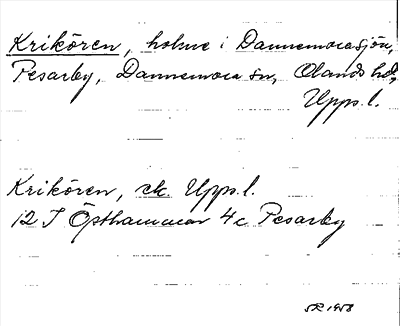 Krikören, holme i Dannemorasjön,
Pesarby, Dannemora sn, Olands hd,
Upps. l.
Krikören, ek. Upps. l.
12 I Östhammar 4c Pesarby
SR 1958